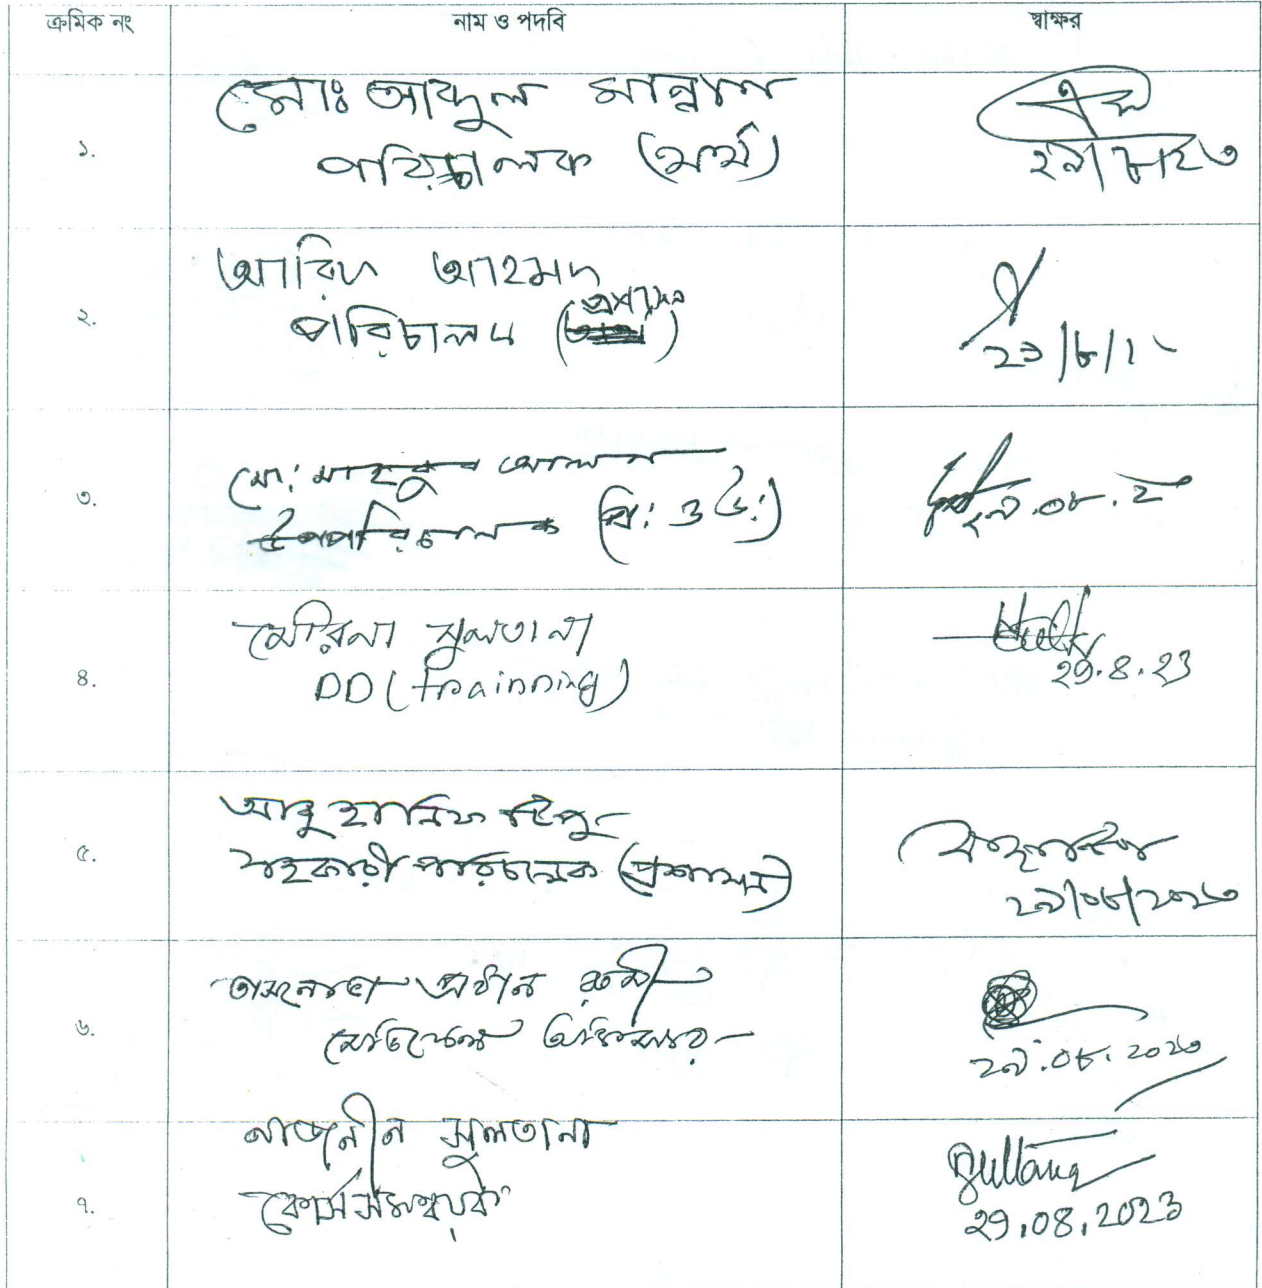 ক্রমিক নং নাম ও পদবি স্বাক্ষর
মোঃ আব্দুল মান্নান
১.
পরিচালক (অর্থ)
২৯/৮/২৩
আরিফ আহমদ
২.
প্রশাসন
পরিচালক ( )
২৯/৮/
মো: মাহবুব আলম
৩.
উপপরিচালক (প্রি: ও উ:)
২৯.০৮.২
সুলতানা
৪.
DD (Trainning)
29.8.23
আবু হানিফ টিপু
৫.
সহকারী পরিচালক (প্রশাসন)
২৯/০৮/২০২৩
প্রধান
৬.
মেডিকেল অফিসার
২৯.০৮.২০২৩
নাজনীন সুলতানা
৭.
কোর্স সমন্বয়ক
Sultana
29.08.2023